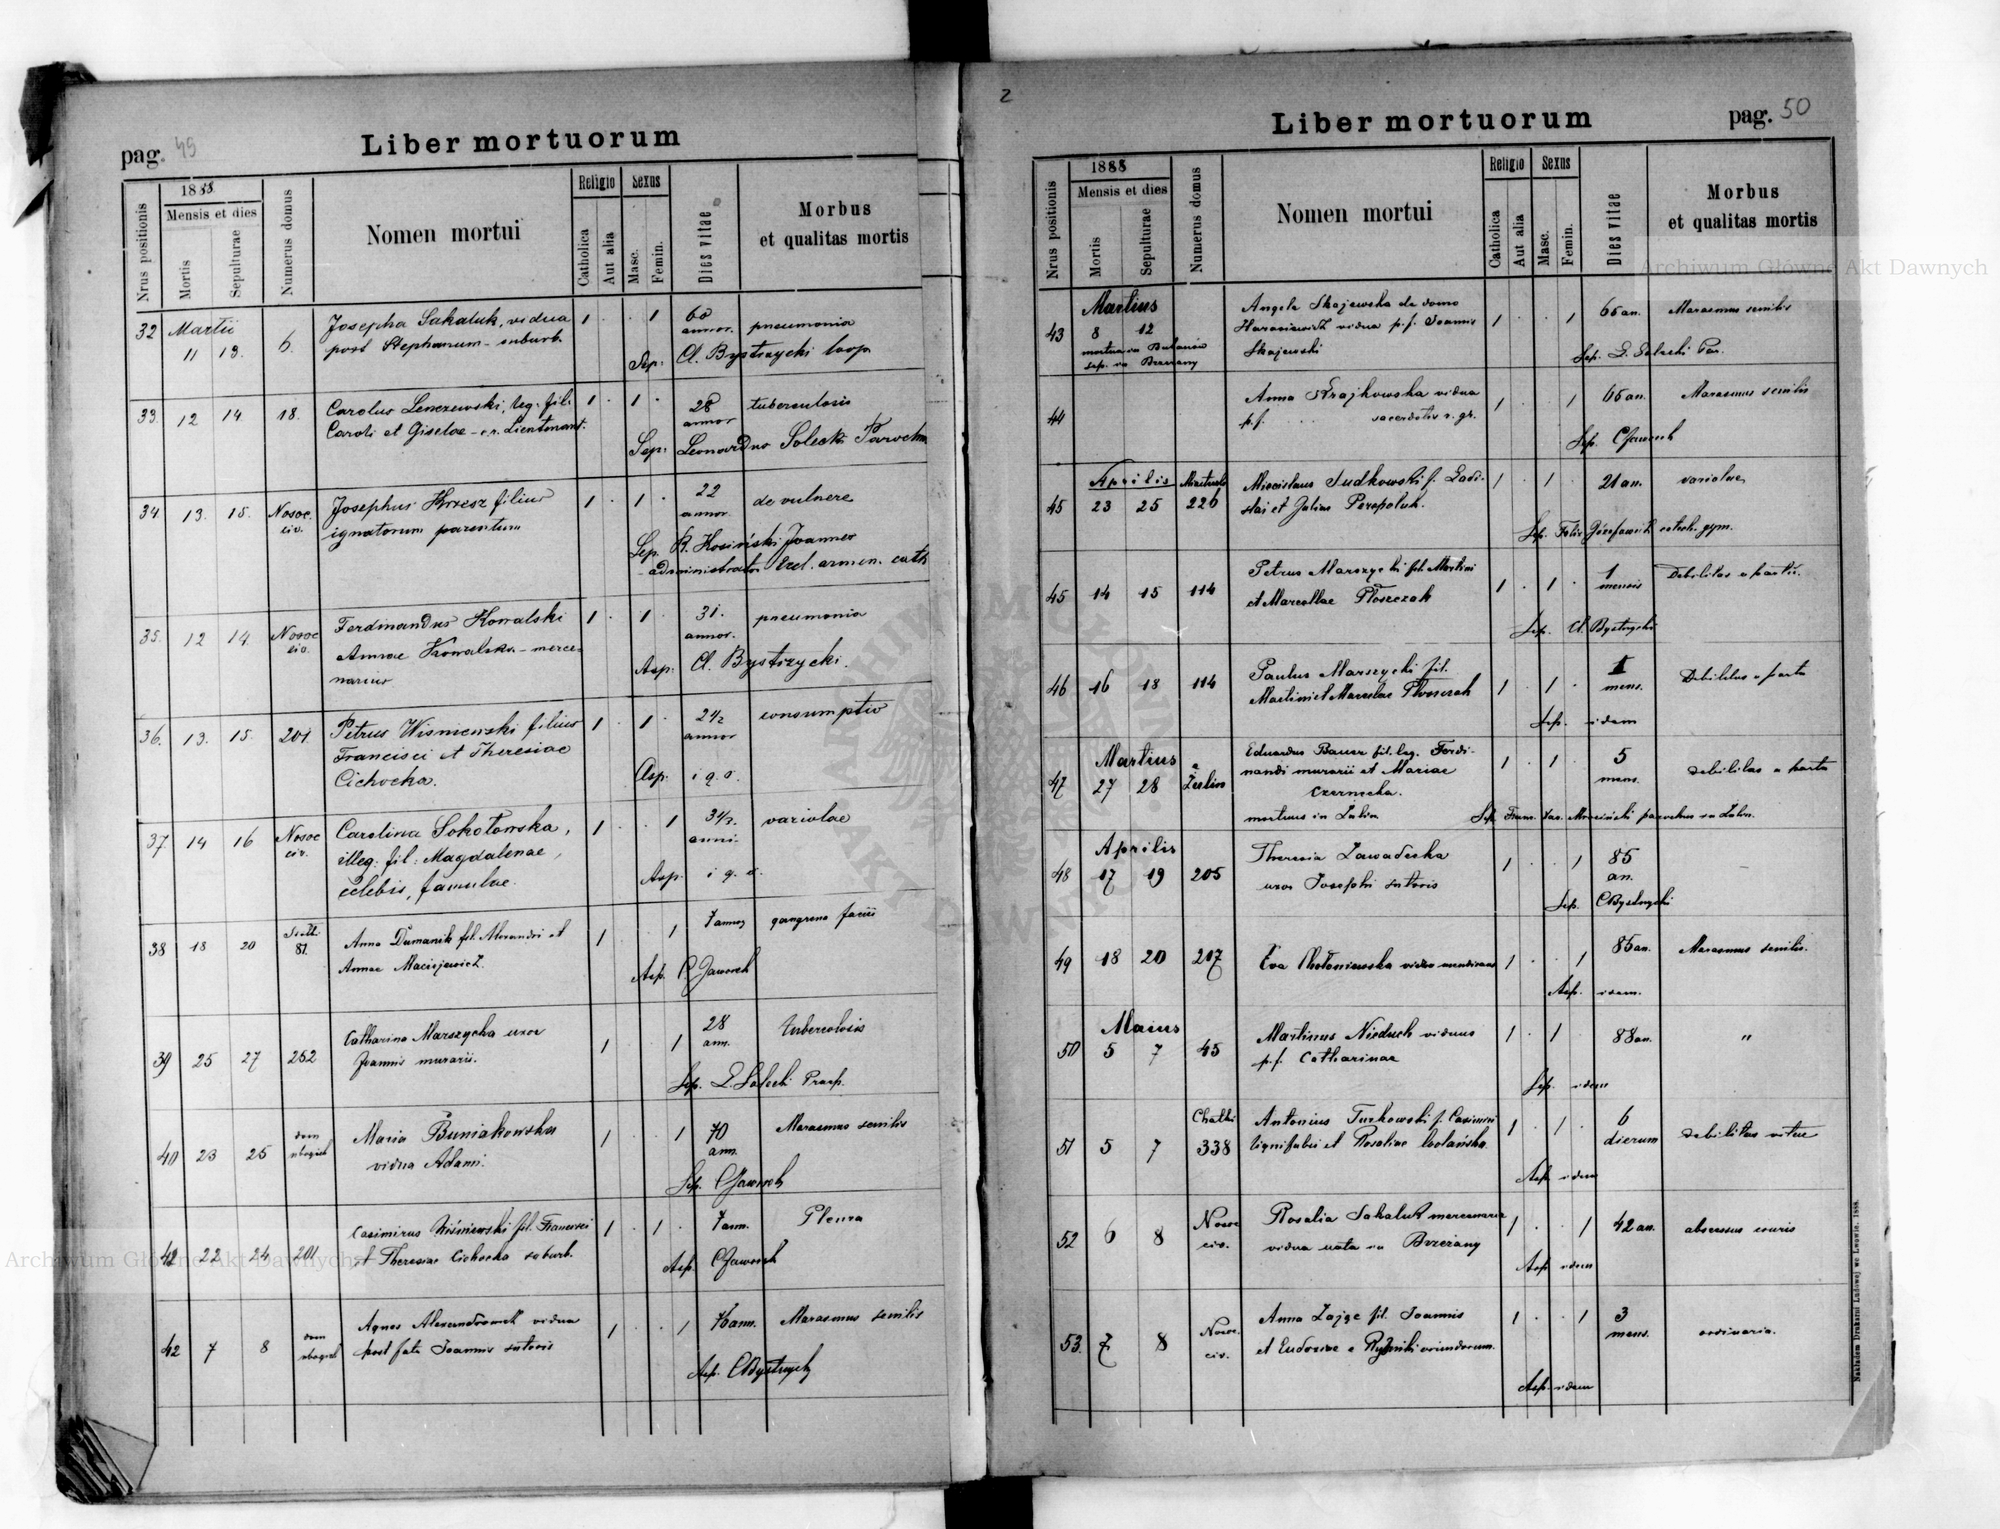 pag. 49
Liber mortuorum
Nrus positionis
1888
Mensis et dies
Mortis
Sepulturae
Numerus domus
Nomen mortui
Religio
Catholica
Aut alia
Sexus
Masc.
Femin.
Dies vitae
Morbus
et qualitas mortis
32 Martii 6. Josepha Sakaluk, vidua 1 . . 1 60 pneumonia
11 13. post Stephanum - suburb. annor.
Sep: Cl. Bystrzycki Coop.
33. 12 14 18. Carolus Lenczewski, leg. fil. 1 . 1 . 28 tuberculosis
Caroli et Giselae - Lieutenant. annor
Sep: Leonardus Solecki Parochus
34 13. 15. Nosoc. Josephus Krzesz filius 1 . 1 . 22 de vulnere
civ. ignotorum parentum annor.
Sep. R. Kosiński Joannes
administrator Eccl. armen. cath
35. 12 14. Nosoc Ferdinandus Kowalski 1 . 1 . 31. pneumonia
civ. Annae Kowalska - merce- annor.
narius Asp: Cl. Bystrzycki.
36. 13. 15. 201. Petrus Wiśniewski filius 1 . 1 . 2 1/2 consumptio
Francisci et Theresiae annor
Cichocka. Asp: i q. s.
37 14 16 Nosoc Carolina Sokołowska, 1 . . 1 3 1/2. variolae
civ. illeg. fil: Magdalenae, anni.
celebis, famulae. Asp. i q. s.
38 18 20 81. Anna Dumanik fil. Alexandri et 1 . . 1 7 annor gangrena faciei
Annae Maciejewicz. Asp. C Jaworek
39 25 27 252 Catharina Marszycka uxor 1 . . 1 28 tuberculosis
Joannis murarii. ann.
Sep. L. Solecki Praep.
40 23 25 dom Maria Buniakowska 1 . . 1 70 Marasmus senilis
ubogich vidua Adami. ann.
Sep. C Jaworek
42 22 24 201 Casimirus Wiśniewski fil. Francisci 1 . 1 . 7 ann. Pleura
et Theresiae Cichocka suburb. Asp. C Jaworek
42 7 8 dom Agnes Alexandrowicz vidua 1 . . 1 76 ann. Marasmus senilis
ubogich post fata Joannis sutoris
Asp. C Bystrzycki
2
Liber mortuorum
pag. 50
Nrus positionis
1888
Mensis et dies
Mortis
Sepulturae
Numerus domus
Nomen mortui
Religio
Catholica
Aut alia
Sexus
Masc.
Femin.
Dies vitae
Morbus
et qualitas mortis
43 Martius Angela Skajewska de domo 1 . . 1 65 an. Marasmus senilis
8 12 Harasiewicz vidua p. f. Joannis
mortua in Skajewski Sep. L. Solecki Par.
sep. in Brzeżany
44 Anna Krajkowska vidua 1 . . 1 65 an. Marasmus senilis
p. f. sacerdotis r. gr.
Sep. C Jaworek
45 Aprilis Miecislaus Sudkowski f. Ladi- 1 . 1 . 21 an. variolae
23 25 226 slai et Julius Peropoluk.
Sep. Felix Józefowicz catech. gym.
45 14 15 114 Petrus Marszycki fil. Martini 1 . 1 . 1 Debilitas a partu.
et Marcellae Płoszczak mensis
Sep. Cl. Bystrzycki
46 16 18 114 Paulus Marszycki fil. 1 . 1 . 1 Debilitas a partu
Martini et Marcelae Płoszczak mens.
Sep. idem
47 Martius Eduardus Bauer fil. leg. Ferdi- 1 . 1 . 5 debilitas a partu
27 28 nandi murarii et Mariae mens.
Czernecka.
mortuus in
48 Aprilis Theresia Zawadzka 1 . . 1 85
17 19 205 uxor Josephi sutoris an.
Sep. C Bystrzycki
49 18 20 217 Eva Chołoniewska vidua mendicans 1 . . 1 85 an. Marasmus senilis.
Asp. idem.
50 Maius Martinus Nieduch viduus 1 . 1 . 88 an. "
5 7 45 p. f. Catharinae
Sep. idem
51 5 7 338 Antonius Turkowski f. Casimiri 1 . 1 . 6 debilitas vitae
lignifabri et Rosaliae dierum
Asp. idem
52 6 8 Nosoc Rosalia Sakaluk mercenaria 1 . . 1 42 an. abscessus cruris
civ. vidua nata in Brzeżany
Asp. idem
53. 7 8 Nosoc. Anna Zając fil. Joannis 1 . . 1 3 ordinaria.
civ. et Eudosiae e oriundorum. mens.
Asp. idem
Nakładem Drukarni Ludowej we Lwowie. 1888.
Archiwum Główne Akt Dawnych
Archiwum Główne Akt Dawnych
ARCHIWUM GŁÓWNE AKT DAWNYCH